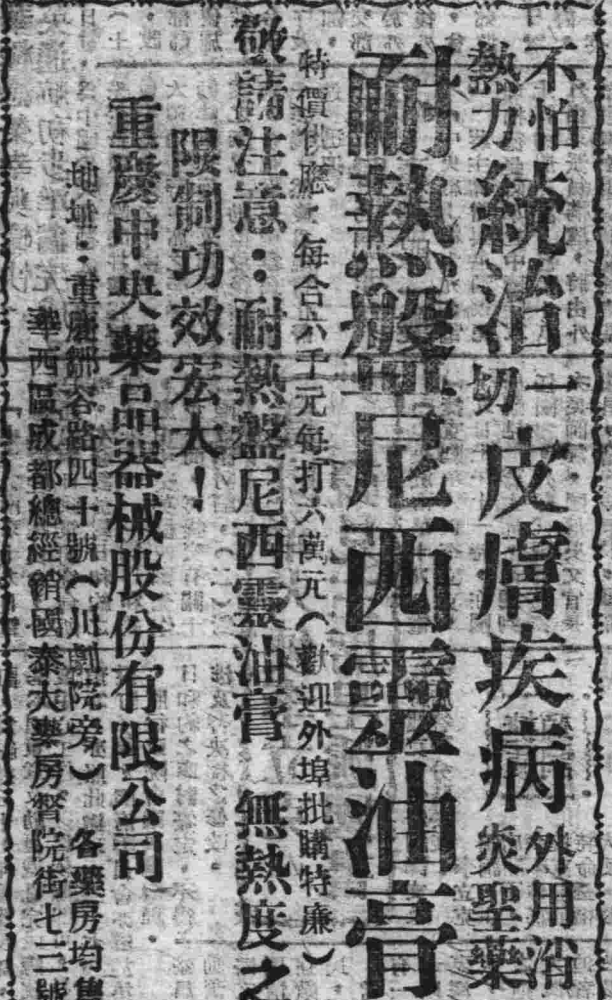 不怕熱力 統治一切 皮膚疾病 外用消炎聖藥
耐熱盤尼西靈油膏
特價供應：每合六千元每打六萬元（歡迎外埠批購特廉）
敬請注意：耐熱盤尼西靈油膏 無熱度之
限制功效宏大！
重慶中央藥品器械股份有限公司
地址：重慶 路四十號（川劇院旁）各藥房均售
華西區成都總經銷國泰大藥房督院街七三號